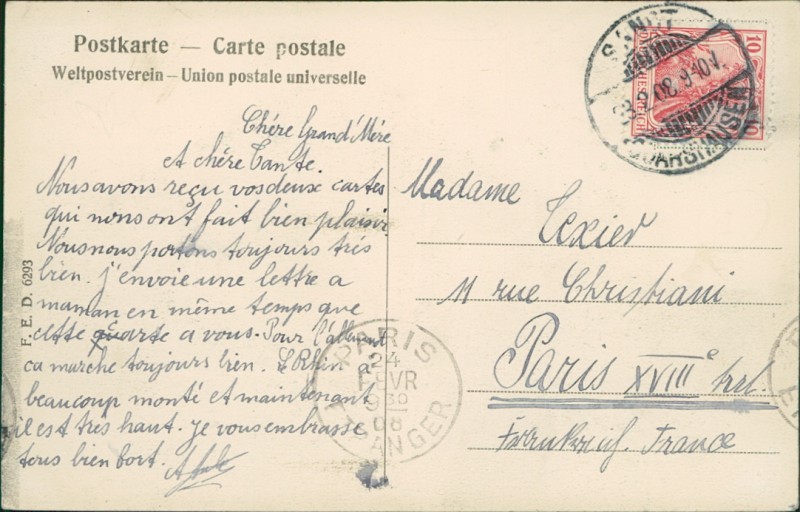 Postkarte — Carte postale
Weltpostverein – Union postale universelle
Chère Grand'Mère
A chère Tante.
Nous avons reçu vos deux cartes
qui nons ont fait bien plaisir
Nous nous portons toujours très
bien. j'envoie une lettre a
maman en même temps que
cette carte a vous. Pour l'allemand
ca marche toujours bien. Le Rhin a
beaucoup monté et maintenant
il est très haut. Je vous embrasse
tous bien fort.
F. E. D. 6293
Madame Texier
11 rue Christiani
Paris XVIIIe
Frankreich. France
PARIS
24
FEVR
9 30
08
ETRANGER
SANKT
GOARSHAUSEN
23 2 08
10